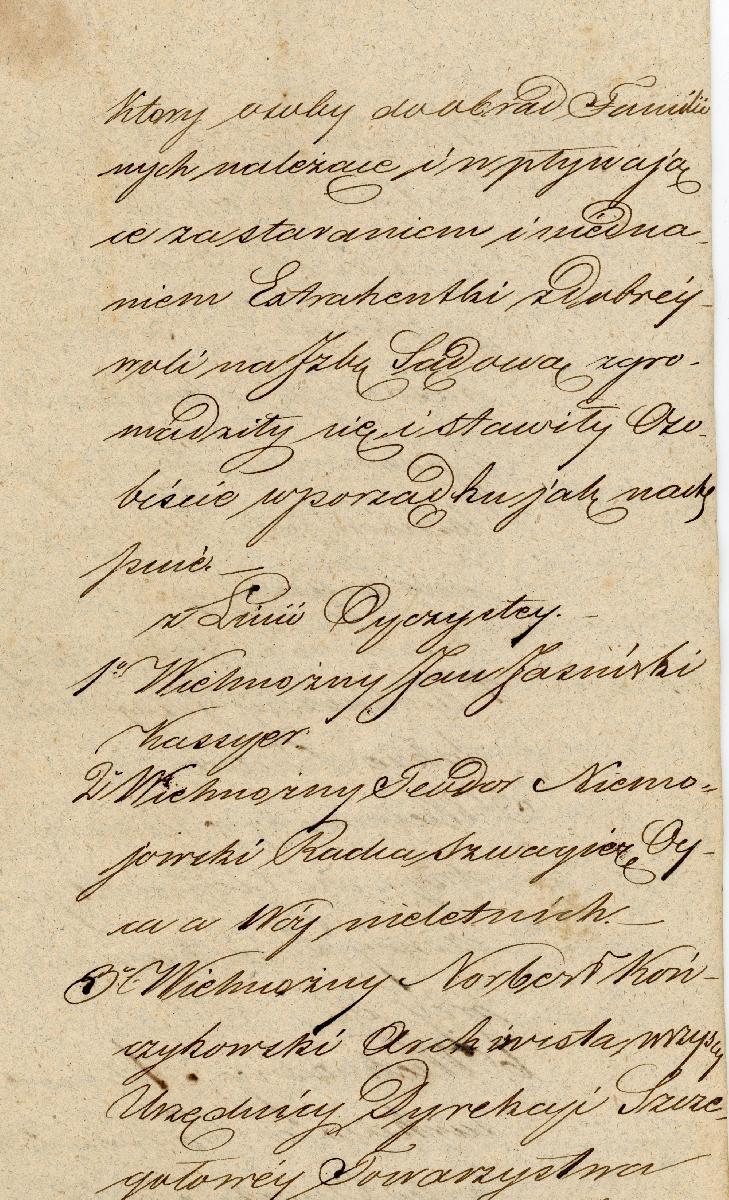 Ktory osoby do obrad Familii
nych należące i wpływają
ce za staraniem i ziedna-
niem Extrahentki z dobrey
woli na Izbę Sądową zgro-
madziły się i stawiły Oso-
biście w porządku jak nastę
puie. —
z Linii Oyczystey. —
1o Wielmożny Jan Jasiński
Kassyer
2o Wielmożny Teodor Niemo-
jowski Radca Szwagier Oy-
ca a Wuj nieletnich. —
3o Wielmożny Norbert Koń-
czykowski Archiwista, wszyscy
Urzędnicy Dyrekcji Szcze-
gołowéy Towarzystwa